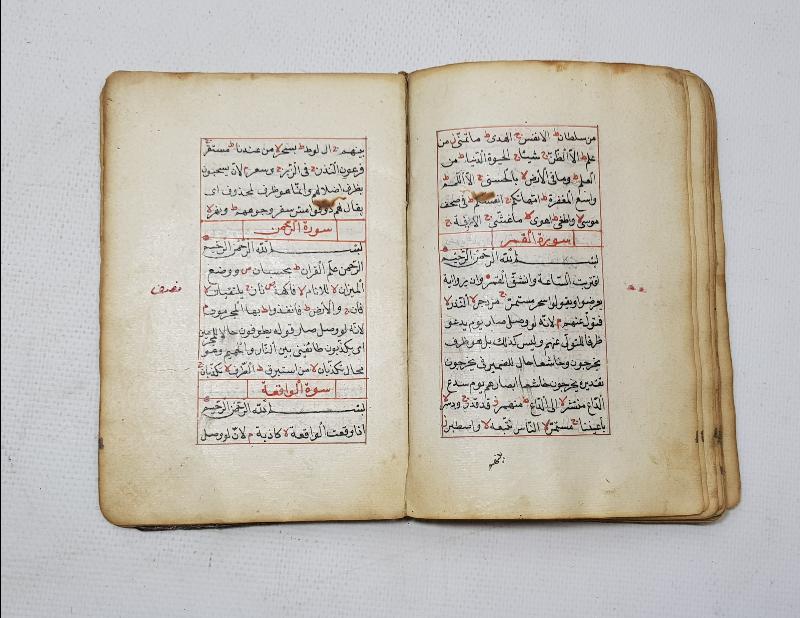 من سلطان ط الانفس ج الهدى ط ما تمنى ز من
علم ط الا الظن ج شيئا ج الحيوة الدنيا ط من
العلم ط وما فى الارض لا بالحسنى ج الا اللمم ط
واسع المغفرة ط امهاتكم ج فى صحف
موسى لا واطغى ط اهوى لا ما غشى ج الازفة ج
سورة القمر
بسم الله الرحمن الرحيم
اقتربت الساعة وانشق القمر وان يروا اية
يعرضوا ويقولوا سحر مستمر ج مزدجر لا النذر لا
فتول عنهم م لانه لو وصل صار يوم يدعو
ظرفا للتول عنهم وليس كذلك بل هو ظرف
يخرجون وخاشعا حال للضمير فى يخرجون
تقديره يخرجون خاشعا ابصارهم يوم يدع
الداع منتشر لا الى الداع ط منهمر ز قد قدر ج ودسر لا
باعيننا ج مستمر لا الناس لا واصطبر ز
بينهم ج ال لوط ط بسحر لا من عندنا ط مستقر ج
فرعون النذر ج فى الزبر ج وسعر م لان يسحبون
ظرف اضلالهم وانما هو ظرف لمحذوف اى
يقال لهم ذوقوا مس سقر وجوههم ط ونهر لا
سورة الرحمن
بسم الله الرحمن الرحيم
الرحمن علم القران ط بحسبان ص ووضع
الميزان لا للانام لا فاكهة ص فان ج
فان ج والارض ط فانفذوا ط بها المجرمون م
لانه لو وصل صار قوله يطوفون حالا للمجرمين
اى يكذبون طائفين بين النار والحميم وهو
محال تكذبان لا من استبرق ط الطرف لا تكذبان ج
سورة الواقعة
بسم الله الرحمن الرحيم
اذا وقعت الواقعة لا كاذبة م لان لو وصل
نصف